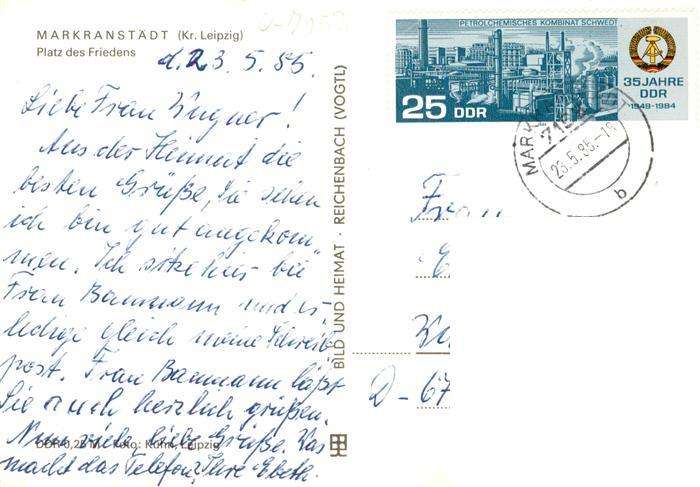 MARKRANSTÄDT (Kr. Leipzig)
Platz des Friedens
d. 23.5.85.
Liebe Frau Wagner!
Aus der Heimat die
besten Grüße, Sie sehen
ich bin gut angekom-
men. Ich sitze hier bei
Frau Baumann und er-
ledige gleich meine Schreib
post. Frau Baumann läßt
Sie auch herzlich grüßen.
Nun viele liebe Grüße. Was
macht das Telefon? Ihre
DDR 0,25 M Foto: Kühn, Leipzig
BILD UND HEIMAT · REICHENBACH (VOGTL)
PETROLCHEMISCHES KOMBINAT SCHWEDT
25 DDR
35 JAHRE
DDR
1949-1984
MARK
71
23.5.85.-1
b
Frau
D-67